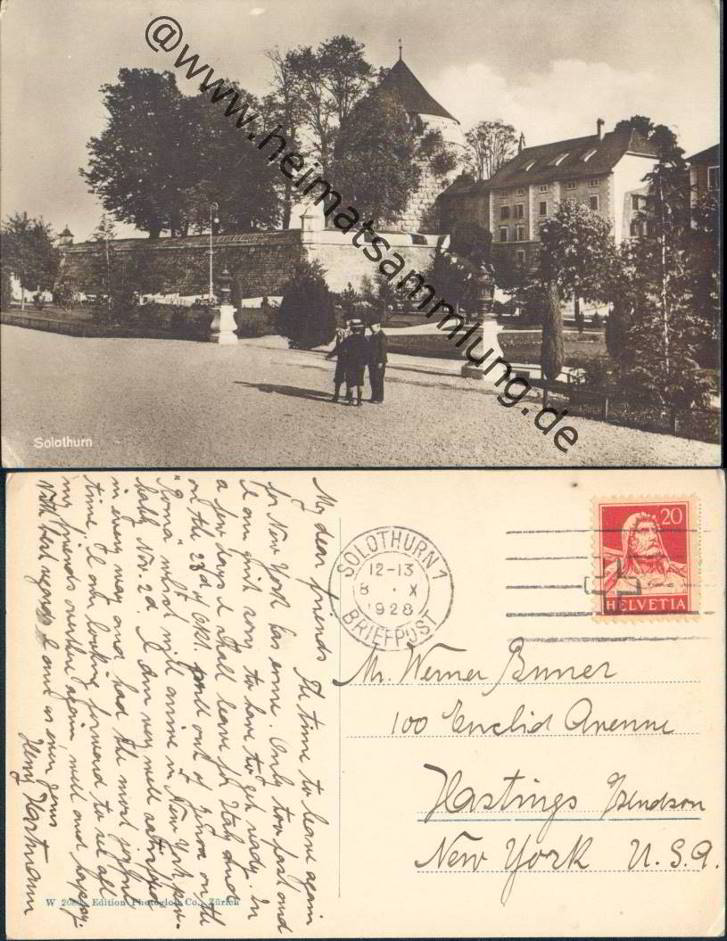 @www.heimatsammlung.de
Solothurn
SOLOTHURN 1
12-13
8 · X
1928
BRIEFPOST
20
HELVETIA
Mr. Werner Bruner
100 Euclid Avenue
Hastings Hudson
New York U.S.A.
My dear friends The time to leave again
for New York has come. Only too fast and
I am quit sorry to have to get ready. In
a few days I shall leave for Italy and
on the 23d of Okt. sail out of Genoa on the
"Roma" which will arrive in New York pro-
bably Nov. 2d. I am very well satisfied
in every way and had the most joyful
time. I am looking forward to see all
my friends overthere again, well and happy.
With best regards I am as ever yours
Hartmann
W Edition Photoglob Co., Zürich